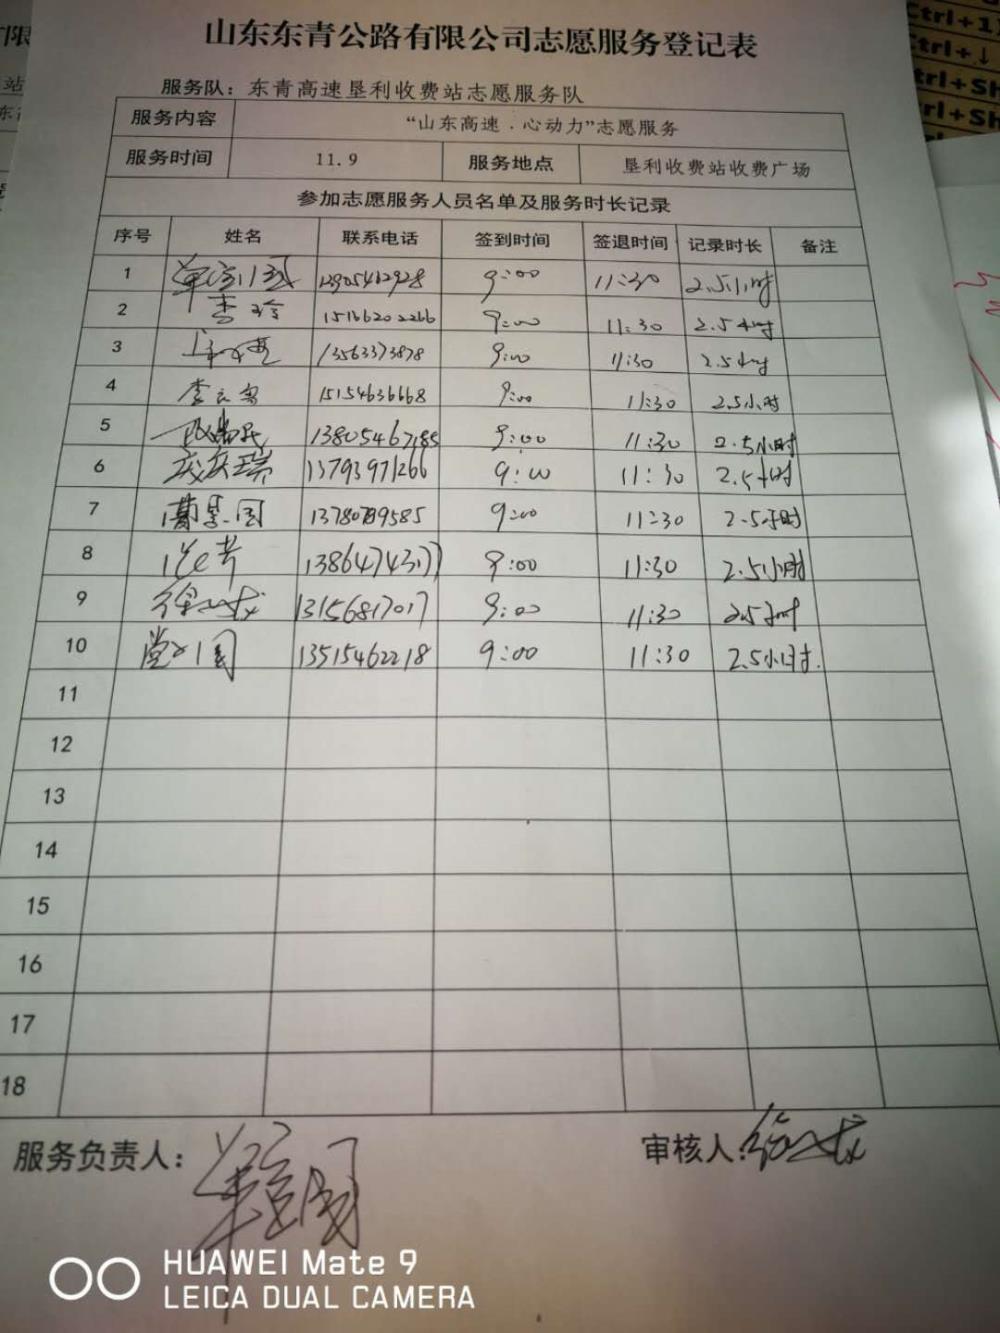 山东东青公路有限公司志愿服务登记表
服务队：东青高速垦利收费站志愿服务队
服务内容 “山东高速．心动力”志愿服务
服务时间 11.9 服务地点 垦利收费站收费广场
参加志愿服务人员名单及服务时长记录
序号 姓名 联系电话 签到时间 签退时间 记录时长 备注
1 9:00 11:30 2.5小时
2 李玲 15166202266 9:00 11:30 2.5小时
3 13563373878 9:00 11:30 2.5小时
4 15154636668 9:00 11:30 2.5小时
5 13805467185 9:00 11:30 2.5小时
6 13793971266 9:00 11:30 2.5小时
7 9:00 11:30 2.5小时
8 13864743177 9:00 11:30 2.5小时
9 13156817017 9:00 11:30 2.5小时
10 13515462218 9:00 11:30 2.5小时.
11
12
13
14
15
16
17
18
服务负责人： 审核人：
HUAWEI Mate 9
LEICA DUAL CAMERA
Ctrl+↓